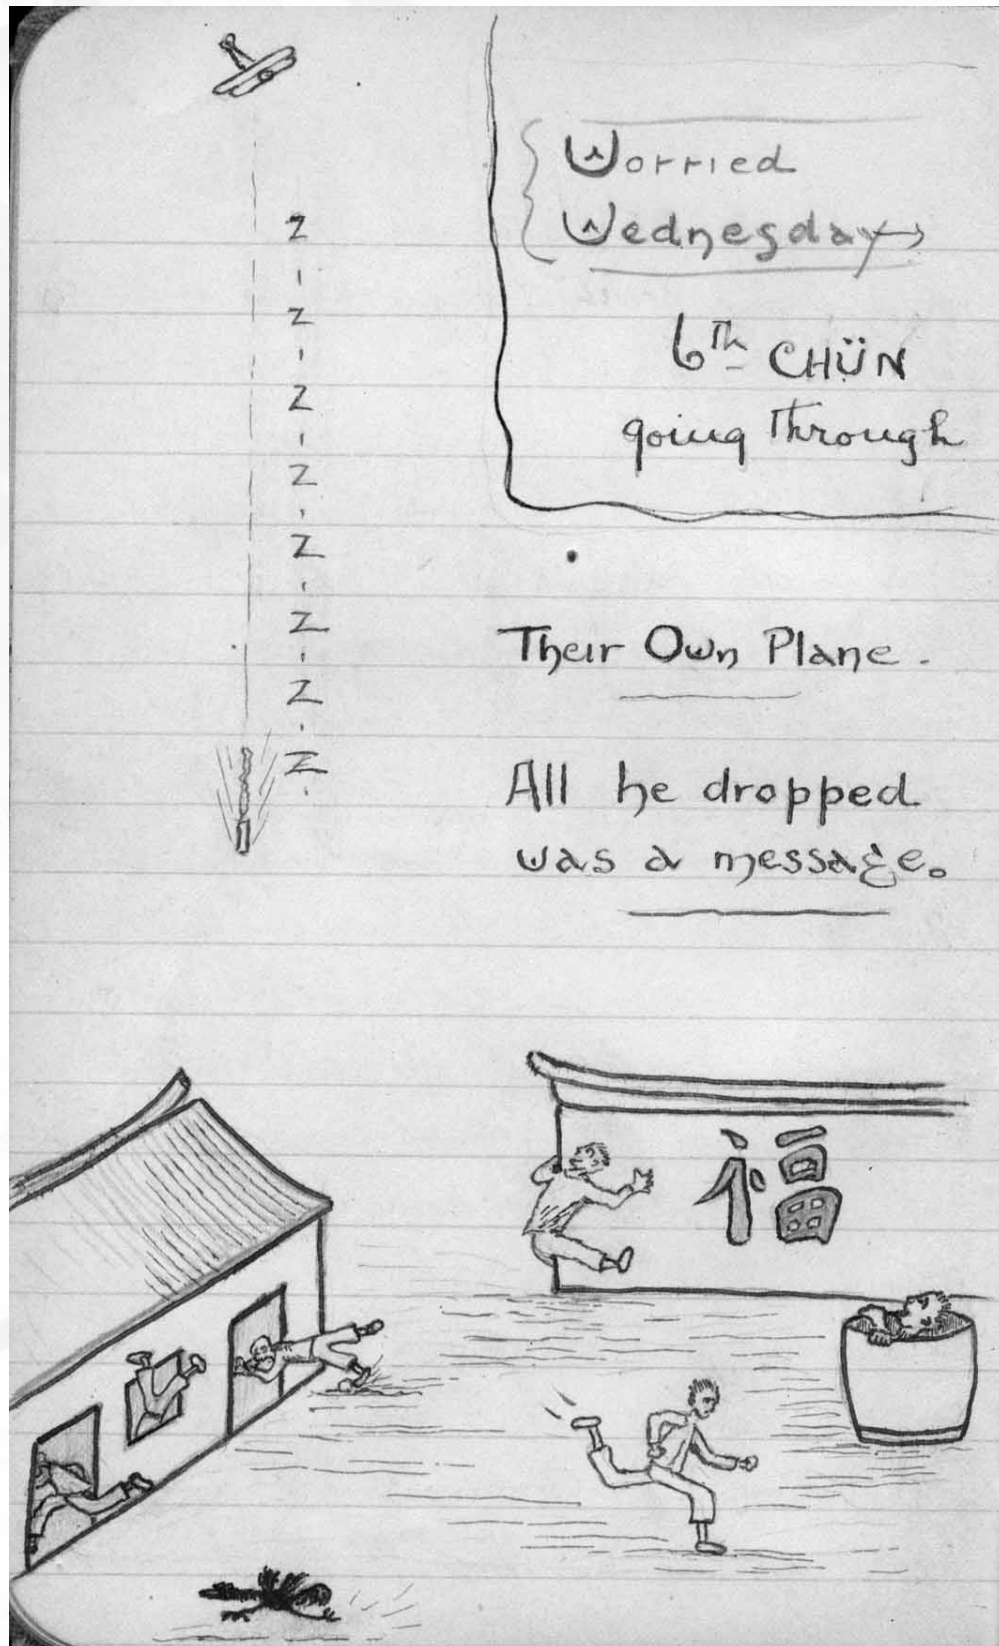 Worried
Wednesday
6th CHÜN
going through
Z
Z
Z
Z
Z
Z
Z
Z
Their Own Plane.
All he dropped
was a message.
福